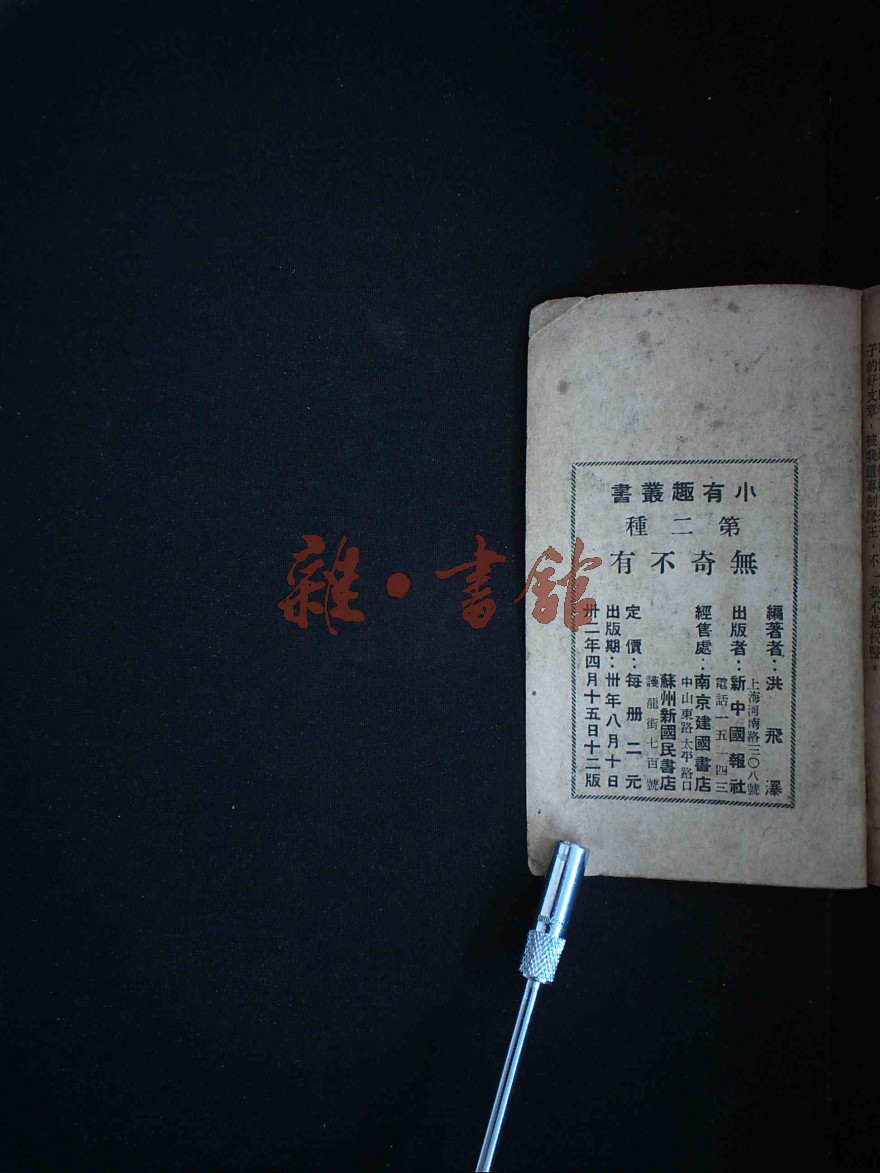 小有趣叢書
第二種
無奇不有
編著者：洪飛瀑
上海河南路三〇八號
出版者：新中國報社
電話一五一四三
經售處：南京建國書店
中山東路太平路口
蘇州新國民書店
護龍街七百號
定價：每册二元
出版期：卅年八月十日
卅二年四月十五日十二版
雜·書館